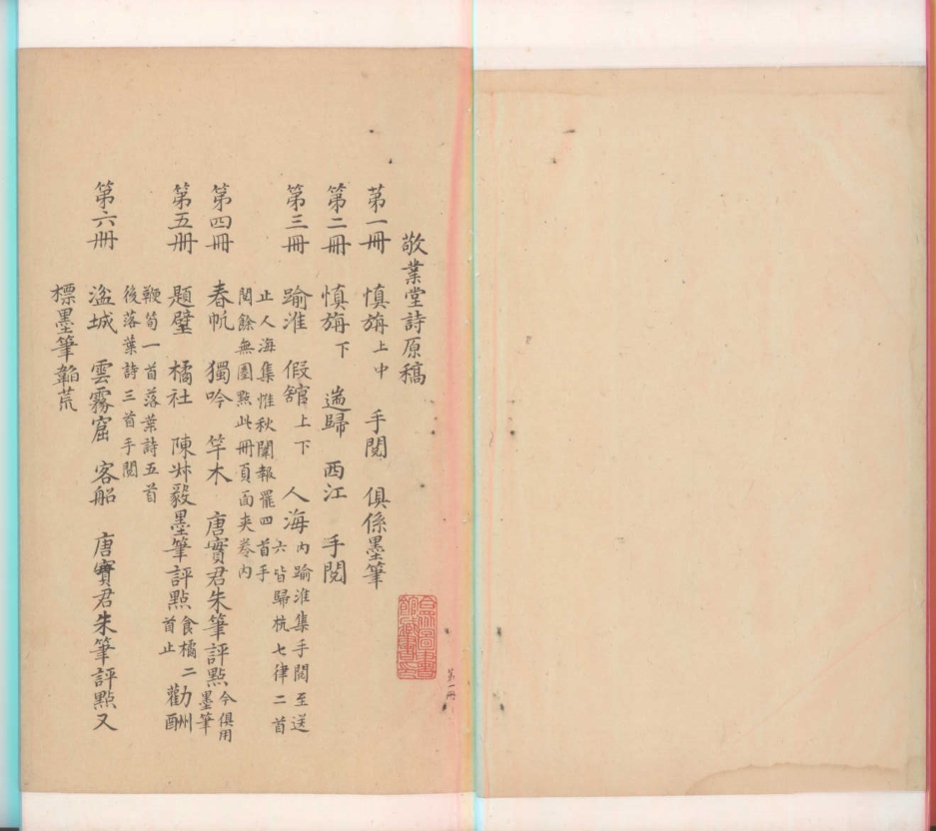 敬業堂詩原稿
第一冊 慎旃上中 手閱 俱係墨筆
第二冊 慎旃下 遄歸 西江 手閱
第三冊 踰淮 假館上下 人海 内踰淮集手閱至送
六皆歸杭七律二首
止人海集惟秋闈報罷四首手
閱餘無圈點此冊頁面夾卷内
第四冊 春帆 獨吟 竿木 唐實君朱筆評點 今俱用
墨筆
第五冊 題壁 橘社 陳叔毅墨筆評點 食橘二
首止 勸酬
鞭筍一首落葉詩五首
後落葉詩三首手閱
第六冊 湓城 雲霧窟 客船 唐實君朱筆評點又
標墨筆韜荒
合眾圖書
館藏書印
第一冊